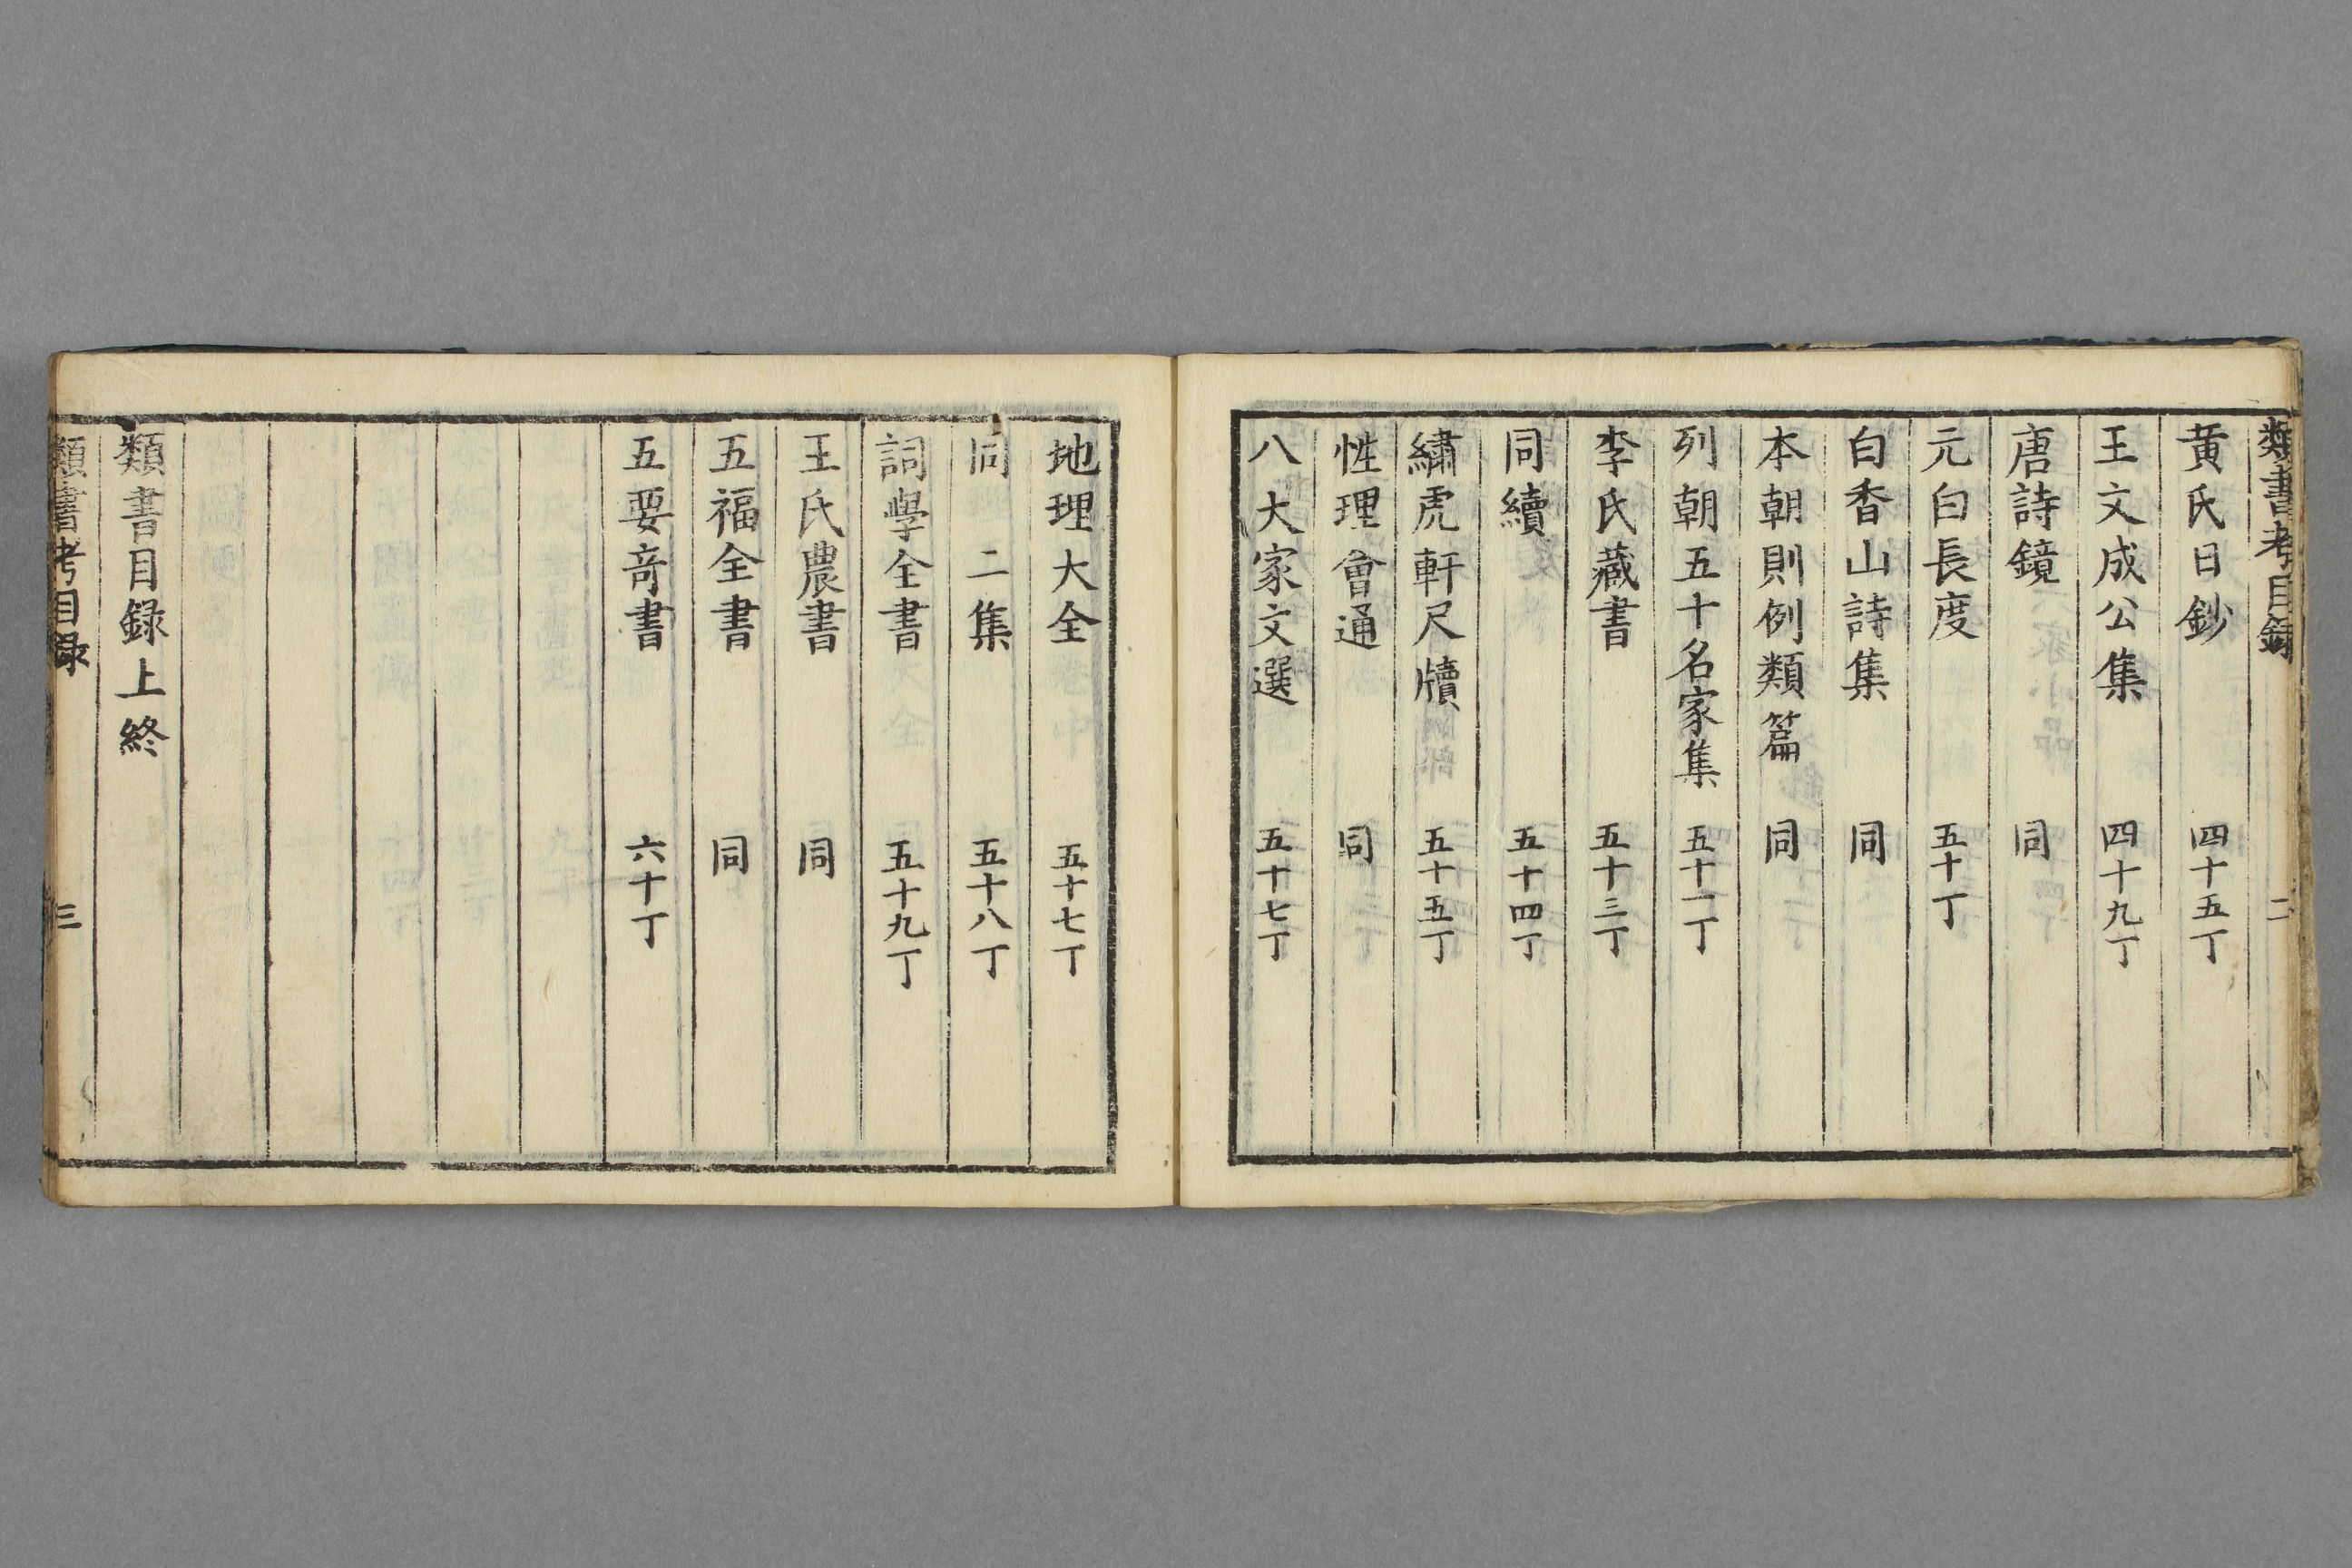 類書考目録 二
黄氏日鈔 四十五丁
王文成公集 四十九丁
唐詩鏡 同
元白長度 五十丁
白香山詩集 同
本朝則例類篇 同
列朝五十名家集 五十一丁
李氏藏書 五十三丁
同續 五十四丁
繡虎軒尺牘 五十五丁
性理會通 同
八大家文選 五十七丁
地理大全 五十七丁
同二集 五十八丁
詞學全書 五十九丁
王氏農書 同
五福全書 同
五要竒書 六十丁
類書目録上終
類書考目録 三